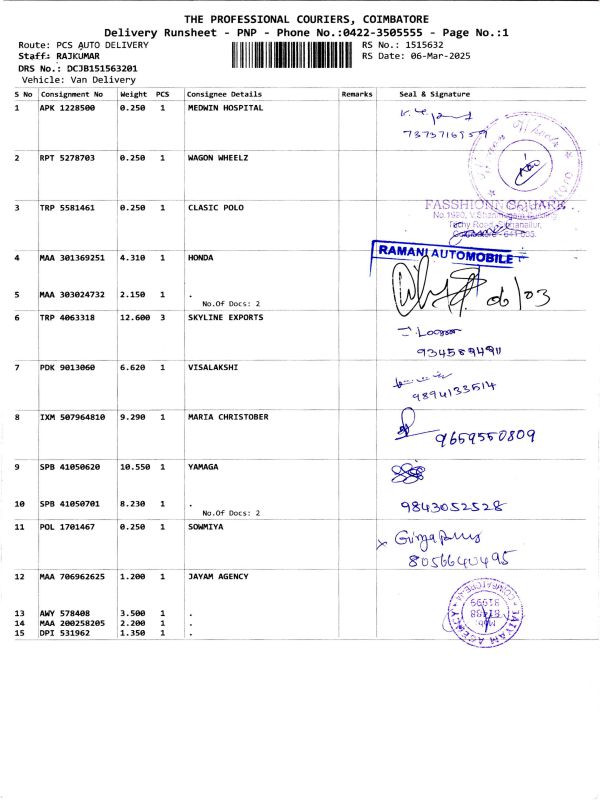 THE PROFESSIONAL COURIERS, COIMBATORE
Delivery Runsheet - PNP - Phone No.:0422-3505555 - Page No.:1
Route: PCS AUTO DELIVERY RS No.: 1515632
Staff: RAJKUMAR RS Date: 06-Mar-2025
DRS No.: DCJB151563201
Vehicle: Van Delivery
S No Consignment No Weight PCS Consignee Details Remarks Seal & Signature
1 APK 1228500 0.250 1 MEDWIN HOSPITAL
7373716959
2 RPT 5278703 0.250 1 WAGON WHEELZ
3 TRP 5581461 0.250 1 CLASIC POLO
FASSHIONN SQUARE
4 MAA 301369251 4.310 1 HONDA
RAMANI AUTOMOBILE
5 MAA 303024732 2.150 1 .
No.Of Docs: 2
06/03
6 TRP 4063318 12.600 3 SKYLINE EXPORTS
9345894911
7 PDK 9013060 6.620 1 VISALAKSHI
9894133514
8 IXM 507964810 9.290 1 MARIA CHRISTOBER
9659550809
9 SPB 41050620 10.550 1 YAMAGA
10 SPB 41050701 8.230 1 .
No.Of Docs: 2
9843052528
11 POL 1701467 0.250 1 SOWMIYA
8056640495
12 MAA 706962625 1.200 1 JAYAM AGENCY
13 AWY 578408 3.500 1 .
14 MAA 200258205 2.200 1 .
15 DPI 531962 1.350 1 .
JAIYAM AGENCY